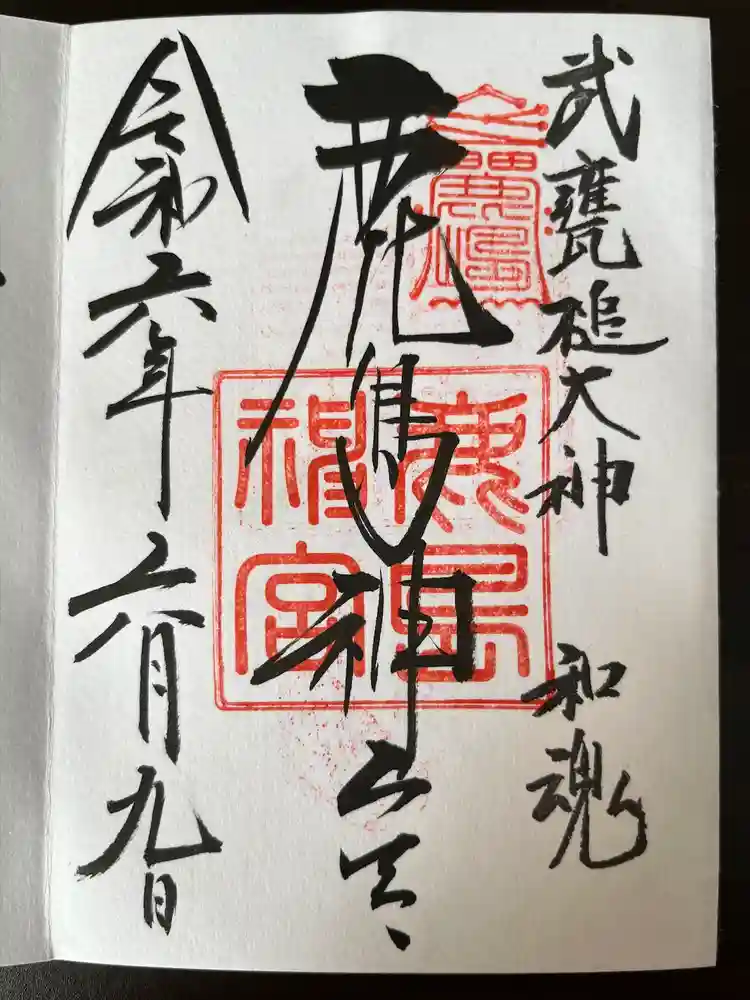 武甕槌大神 和魂
鹿島神宮
鹿島
神宮
令和六年六月九日